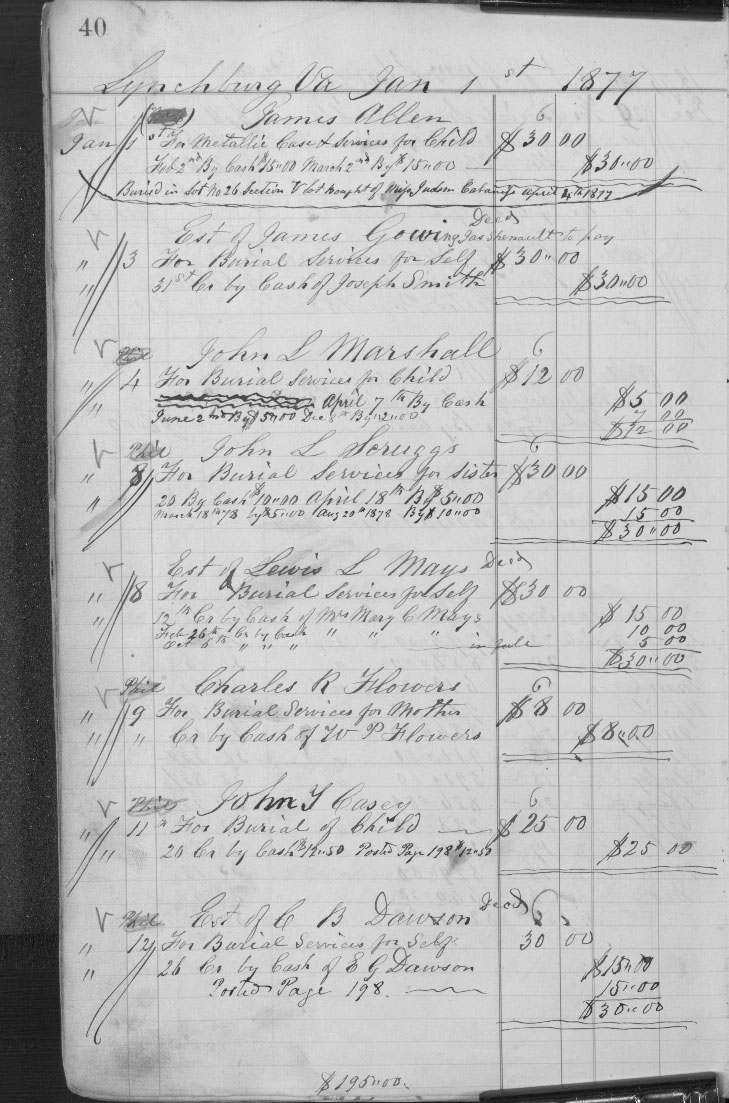 40
Lynchburg Va Jan 1st 1877
James Allen 6
Jan 1st For Metallic Case & Services for Child $30 00
Feb 2nd By Cash $15"00 March 2nd By $15"00 $30"00
Buried in Lot No 26 Section V Lot bought of Judson Cabaniss April 4th 1877
Est of James Gowing Decd Jas Shenault to pay
" 3 For Burial Services for Self $30"00
" 31st Cr by Cash of Joseph Smith $30"00
Phil John L Marshall 6
" 4 For Burial Services for Child $12 00
" April 7th By Cash $5 00
June 2nd By $5"00 Dec 8th By 2"00 7 00
$12 00
Phil John L Scruggs 6
" 8 For Burial Services for Sister $30 00
" 20 By Cash $10"00 April 18th By $5"00 $15 00
March 18th 78 by $5"00 Aug 20th 1878 By $10"00 15 00
$30"00
Est of Lewis L Mays Decd
" 8 For Burial Services for Self $30 00
" 12th Cr by Cash of Mrs Mary C Mays $15 00
Feb 26th Cr by Cash " " " 10 00
Oct 6th " " " in full 5 00
$30"00
Phil Charles R Flowers 6
" 9 For Burial Services for Mother $8 00
" " Cr by Cash of W P Flowers $8"00
Phil John T Casey 6
" 11th For Burial of Child $25 00
" 20 Cr by Cash $12"50 Posted Page 198 $12"50 $25 00
Phil Est of C B Dawson Decd 6
" 12 For Burial Services for Self 30 00
" 26 Cr by Cash of E G Dawson $15"00
Posted Page 198 15"00
$30"00
$195"00